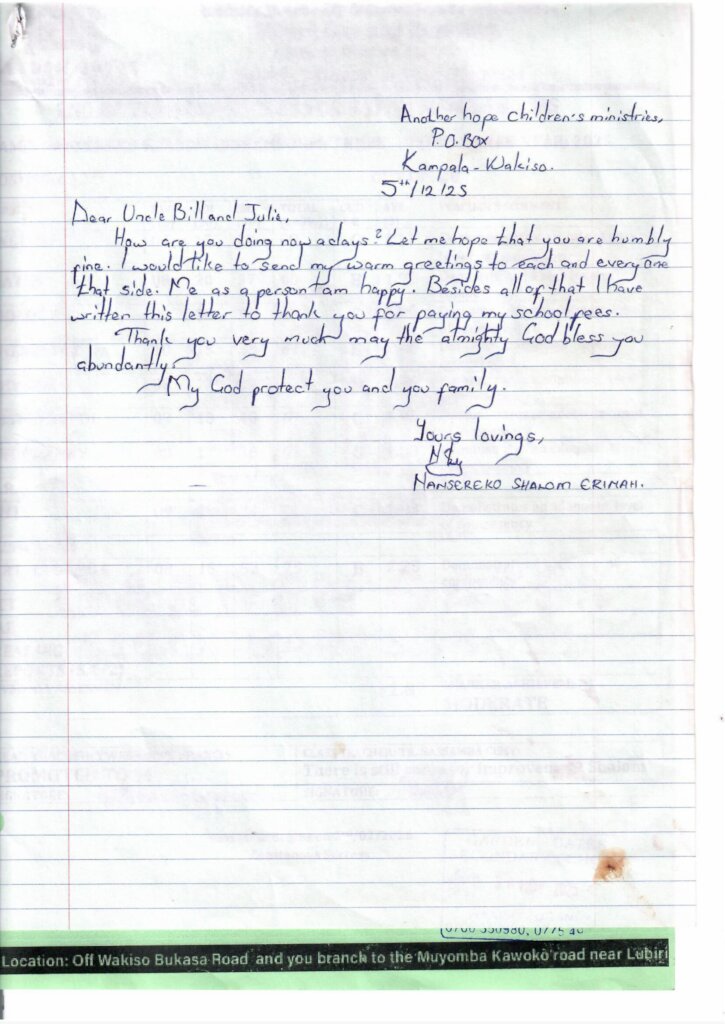 Another hope children's ministries,
P.O.BOX
Kampala - Wakiso.
5th/12/25
Dear Uncle Bill and Julie,
How are you doing now adays? Let me hope that you are humbly
fine. I would like to send my warm greetings to each and every one
that side. Me as a person I am happy. Besides all of that I have
written this letter to thank you for paying my school fees.
Thank you very much may the almighty God bless you
abundantly.
My God protect you and you family.
Yours lovings,
NANSEREKO SHALOM ERINAH.
Location: Off Wakiso Bukasa Road and you branch to the Muyomba Kawoko road near Lubiri